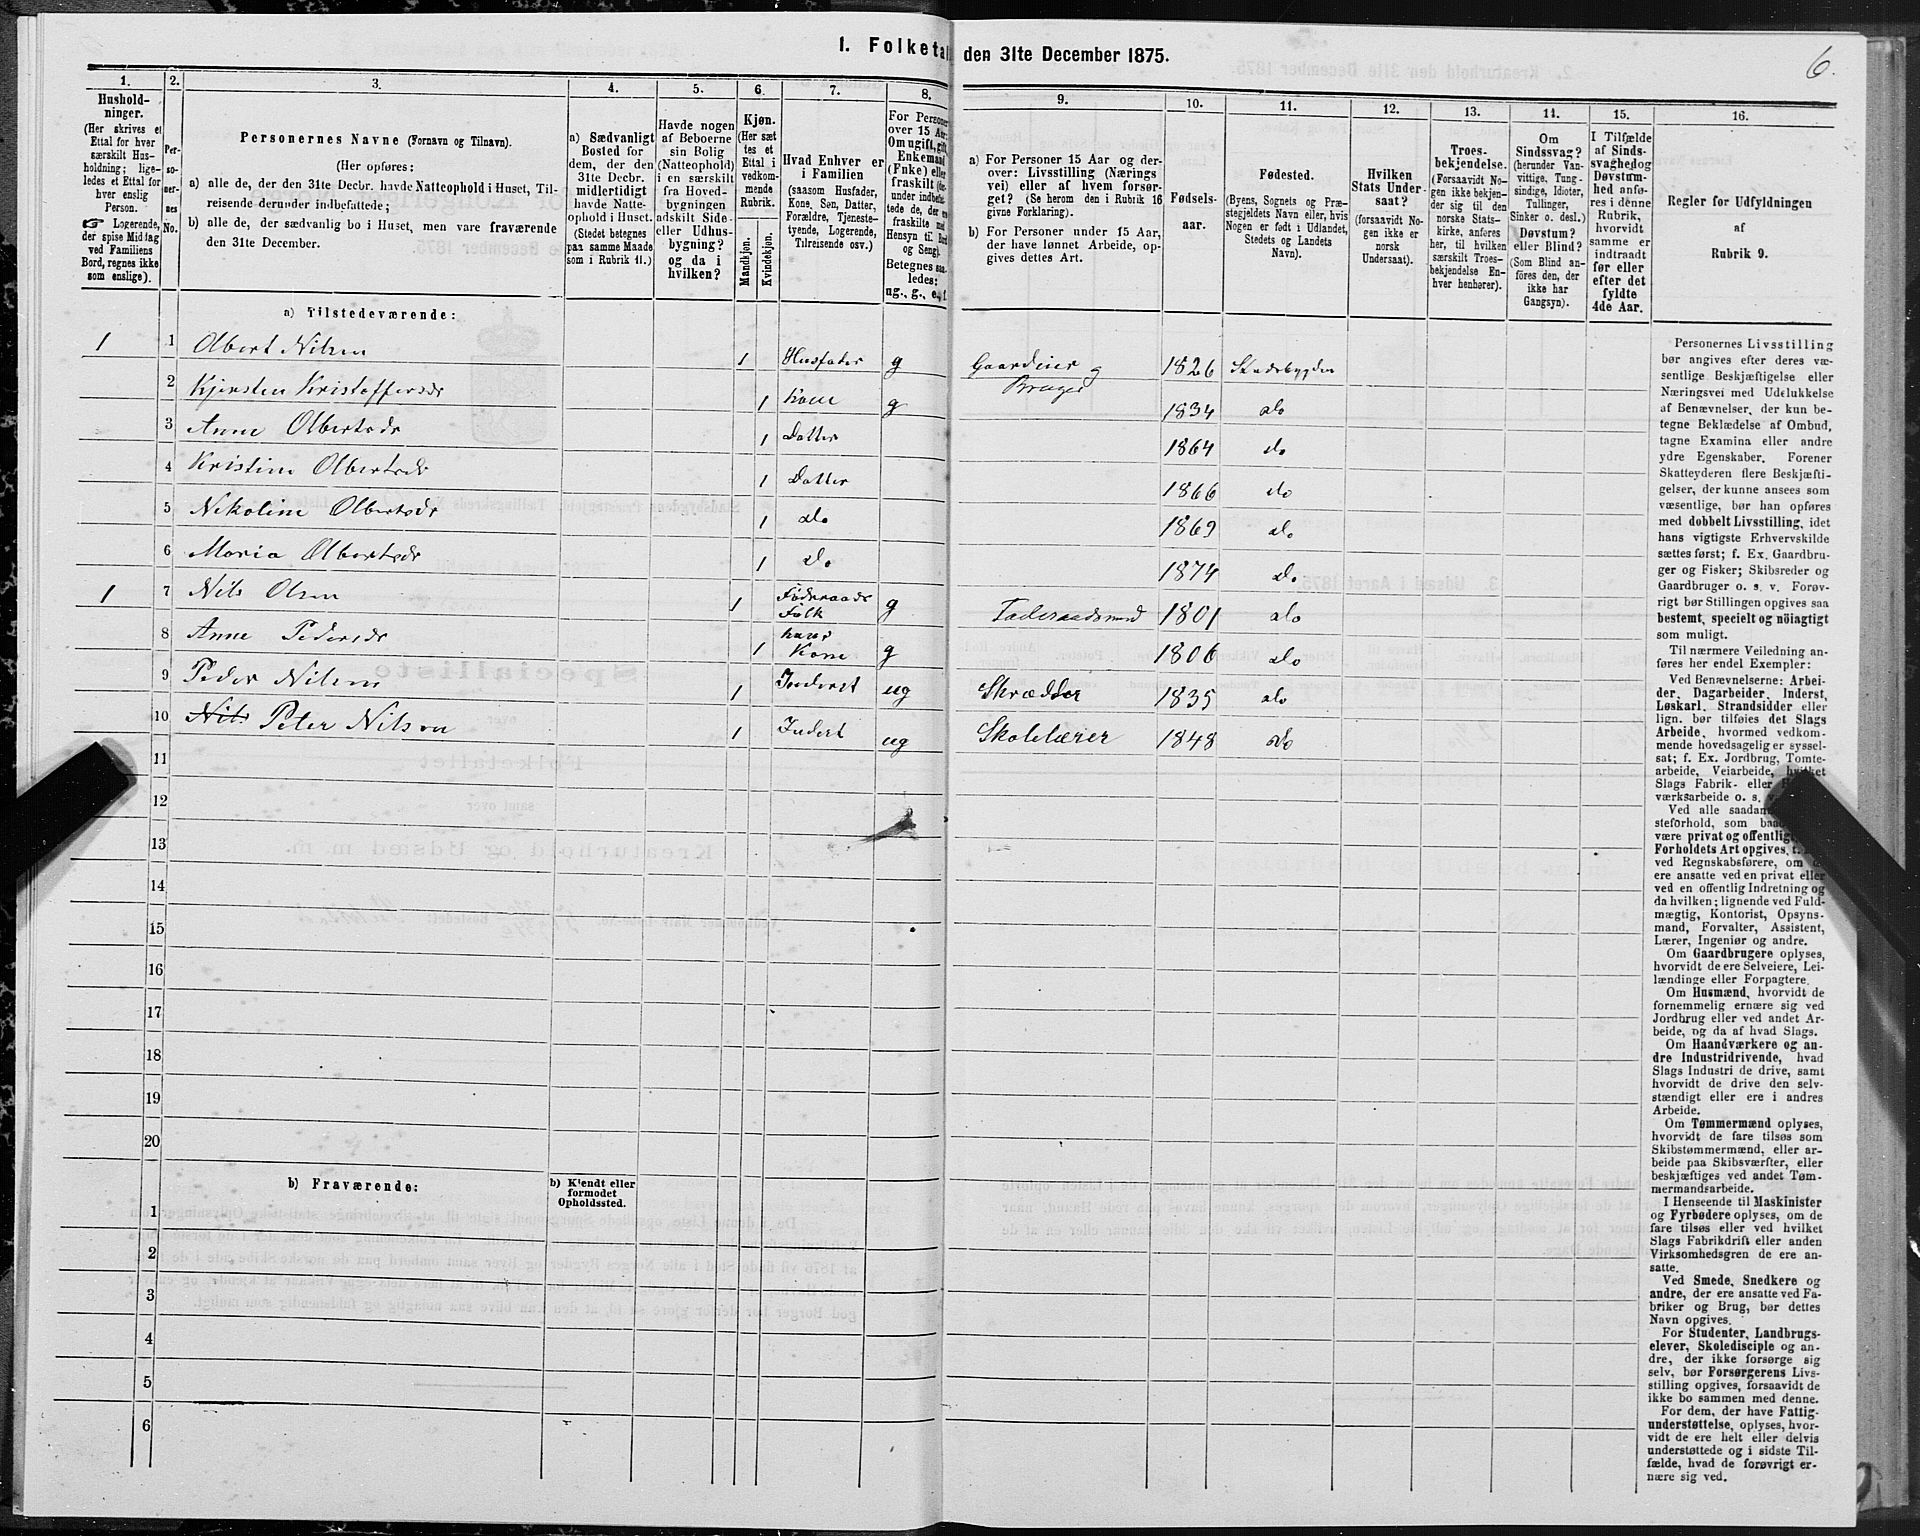 1. Folketa
den 31te December 1875.
6.
1.
2.
3.
4.
5.
6.
7.
8.
9.
10.
11.
12.
13.
14.
15.
16.
Hushold-
ninger.
(Her skrives et
Ettal for hver
særskilt Hus-
holdning; lige-
ledes et Ettal for
hver enslig
Person.
Logerende,
der spise Middag
ved Familiens
Bord, regnes ikke
som enslige).
Per-
so-
ner-
nes
No.
Personernes Navne (Fornavn og Tilnavn).
(Her opføres:
a) alle de, der den 31te Decbr. havde Natteophold i Huset, Til-
reisende derunder indbefattede;
b) alle de, der sædvanlig bo i Huset, men vare fraværende
den 31te December.
a) Sædvanligt
Bosted for
dem, der den
31te Decbr.
midlertidigt
havde Natte-
ophold i Huset.
(Stedet betegnes
paa samme Maade
som i Rubrik 11.)
Havde nogen
af Beboerne
sin Bolig
(Natteophold)
i en særskilt
fra Hoved-
bygningen
adskilt Side-
eller Udhus-
bygning?
og da i
hvilken?
Kjøn.
(Her sæt
tes et
Ettal i
vedkom-
mende
Rubrik.
Mandkjøn.
Kvindekjøn.
Hvad Enhver er
i Familien
(saasom Husfader,
Kone, Søn, Datter,
Forældre, Tjeneste-
tyende, Logerende,
Tilreisende osv.)
For Persone
over 15 Aar:
Om ugift, gift,
Enkemand
(Enke) eller
fraskilt
ledes:
ug., g., e., f.
a) For Personer 15 Aar og der-
over: Livsstilling (Nærings
vei) eller af hvem forsør-
get? (Se herom den i Rubrik 16
givne Forklaring).
b) For Personer under 15 Aar,
der have lønnet Arbeide, op-
gives dettes Art.
Fødsels-
aar.
Fødested.
(Byens, Sognets og Præ-
stegjeldets Navn eller, hvis
Nogen er født i Udlandet,
Stedets og Landets
Navn).
Hvilken
Stats Under-
saat?
(forsaavidt No-
gen ikke er
norsk
Undersaat).
Troes-
bekjendelse.
(Forsaavidt No-
gen ikke bekjen-
der sig til den
norske Stats-
kirke, anføres
her, til hvilken
særskilt Troes-
bekjendelse En-
hver henhører).
Om
Sindssvag?
(herunder Van-
vittige, Tung-
sindige, Idioter,
Tullinger,
Sinker o. desl.)
Døvstum?
eller Blind?
(Som Blind an-
føres den, der
ikke har
Gangsyn).
I Tilfælde
af Sinds-
svaghed og
Døvstum-
hed anfø-
res i denne
Rubrik,
hvorvidt
samme er
indtraadt
før eller
efter det
fyldte
4de Aar.
Regler for Udfyldningen
af
Rubrik 9.
a) Tilstedeværende:
1 1 Olbert Nilsen 1 Husfader g Gaardeier og Bruger 1826 Stadsbygden
2 Kjersten Kristoffersdr 1 Kone g 1834 do
3 Anne Olbertsdr 1 Datter 1864 do
4 Kristine Olbertsdr 1 Datter 1866 do
5 Nikoline Olbertsdr 1 do 1869 do
6 Maria Olbertsdr 1 do 1874 do
1 7 Nils Olsen 1 Føderaads Folk g Føderaadsmd 1801 do
8 Anne Pedersdr 1 hans Kone g 1806 do
9 Peder Nilsen 1 Inderst ug Skrædder 1835 do
10 Nils Peter Nilsen 1 Inderst ug Skolelærer 1848 do
11
12
13
14
15
16
17
18
19
20
b) Fraværende:
b) Kjendt eller
formodet
Opholdssted.
1
2
3
4
5
6
Personernes Livsstilling
bør angives efter deres væ-
sentlige Beskjæftigelse eller
Næringsvei med Udelukkelse
af Benævnelser, der kun be-
tegne Beklædelse af Ombud,
tagne Examina eller andre
ydre Egenskaber. Forener
Skatteyderen flere Beskjæfti-
gelser, der kunne ansees som
væsentlige, bør han opføres
med dobbelt Livsstilling, idet
hans vigtigste Erhvervskilde
sættes først; f. Ex. Gaardbru-
ger og Fisker; Skibsreder og
Gaardbruger o. s. v. Forøv-
rigt bør Stillingen opgives saa
bestemt, specielt og nöiagtigt
som muligt.
Til nærmere Veiledning an-
føres her endel Exempler:
Ved Benævnelserne: Arbei-
der, Dagarbeider, Inderst,
Løskarl, Strandsidder eller
lign. bør tilføies det Slags
Arbeide, hvormed vedkom-
mende hovedsagelig er syssel-
sat; f. Ex. Jordbrug, Tomte-
arbeide, Veiarbeide, hvilket
Slags Fabrik- eller
værksarbeide o. s. v.
Ved alle saadan
steforhold, som
være privat og offentlig
Forholdets Art opgives,
ved Regnskabsførere, om
ere ansatte ved en privat eller
ved en offentlig Indretning og
da hvilken; lignende ved Fuld-
mægtig, Kontorist, Opsyns-
mand, Forvalter, Assistent,
Lærer, Ingeniør og andre.
Om Gaardbrugere oplyses,
hvorvidt de ere Selveiere, Lei-
lændinge eller Forpagtere.
Om Husmænd, hvorvidt de
fornemmelig ernære sig ved
Jordbrug eller ved andet Ar-
beide, og da af hvad Slags.
Om Haandværkere og an-
dre Industridrivende, hvad
Slags Industri de drive, samt
hvorvidt de drive den selv-
stændigt eller ere i andres
Arbeide.
Om Tømmermænd oplyses,
hvorvidt de fare tilsøs som
Skibstømmermænd, eller ar-
beide paa Skibsværfter, eller
beskjæftiges ved andet Tøm-
mermandsarbeide.
I Henseende til Maskinister
og Fyrbødere oplyses, om de
fare tilsøs eller ved hvilket
Slags Fabrikdrift eller anden
Virksomhedsgren de ere an-
satte.
Ved Smede, Snedkere og
andre, der ere ansatte ved Fa-
briker og Brug, bør dettes
Navn opgives.
For Studenter, Landbrugs-
elever, Skoledisciple og an-
dre, der ikke forsørge sig
selv, bør Forsørgerens Livs-
stilling opgives, forsaavidt de
ikke bo sammen med denne.
For dem, der have Fattig-
understøttelse, oplyses, hvor-
vidt de ere helt eller delvis
understøttede og i sidste Til-
fælde, hvad de forøvrigt er-
nære sig ved.